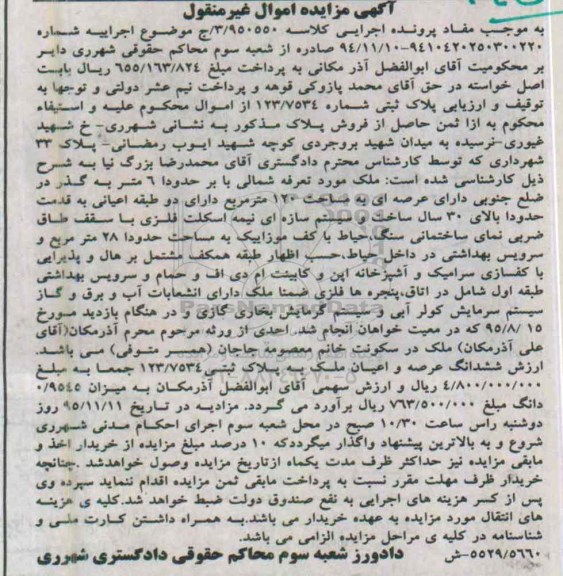 آگهی مزایده اموال غیرمنقول
به موجب مفاد پرونده اجرایی کلاسه ۳/۹۵۰۵۵۰/ج موضوع اجراییه شماره
۹۴۱۰۴۲۰۲۵۰۳۰۰۲۲۰-۹۴/۱۱/۱۰ صادره از شعبه سوم محاکم حقوقی شهرری دایر
بر محکومیت آقای ابوالفضل آذر مکانی به پرداخت مبلغ ۶۵۵/۱۶۳/۸۲۴ ریال بابت
اصل خواسته در حق آقای محمد پازوکی قوهه و پرداخت نیم عشر دولتی و توجها به
توقیف و ارزیابی پلاک ثبتی شماره ۱۲۳/۷۵۳۴ از اموال محکوم علیه و استیفاء
محکوم به ازا ثمن حاصل از فروش پلاک مذکور به نشانی شهرری- خ شهید
غیوری-نرسیده به میدان شهید بروجردی کوچه شهید ایوب رمضانی- پلاک ۳۳
شهرداری که توسط کارشناس محترم دادگستری آقای محمدرضا بزرگ نیا به شرح
ذیل کارشناسی شده است: ملک مورد تعرفه شمالی با بر حدودا ۶ متر به گذر در
ضلع جنوبی دارای عرصه ای به مساحت ۱۲۰ مترمربع دارای دو طبقه اعیانی به قدمت
حدودا بالای ۳۰ سال ساخت با سیستم سازه ای نیمه اسکلت فلزی با سقف طاق
ضربی نمای ساختمانی سنگ،حیاط با کف موزاییک به مساحت حدودا ۲۸ متر مربع و
سرویس بهداشتی در داخل حیاط.حسب اظهار طبقه همکف مشتمل بر هال و پذیرایی
با کفسازی سرامیک و آشپزخانه اپن و کابینت ام دی اف و حمام و سرویس بهداشتی
طبقه اول شامل در اتاق،پنجره ها فلزی ضمنا ملک دارای انشعابات آب و برق و گاز
سیستم سرمایش کولر آبی و سیستم گرمایش بخاری گازی و در هنگام بازدید مورخ
۹۵/۸/۱۵ که در معیت خواهان انجام شد. احدی از ورثه مرحوم محرم آذرمکان(آقای
علی آذرمکان) ملک در سکونت خانم معصومه حاجان (همسر متوفی) می باشد.
ارزش ششدانگ عرصه و اعیان ملک به پلاک ثبتی ۱۲۳/۷۵۳۴ جمعا به مبلغ
۴/۸۰۰/۰۰۰/۰۰۰ ریال و ارزش سهمی آقای ابوالفضل آذرمکان به میزان ۰/۹۵۴۵
دانگ مبلغ ۷۶۳/۵۰۰/۰۰۰ ریال برآورد می گردد. مزادیه در تاریخ ۹۵/۱۱/۱۱ روز
دوشنبه راس ساعت ۱۰/۳۰ صبح در محل شعبه سوم اجرای احکام مدنی شهرری
شروع و به بالاترین پیشنهاد واگذار میگرددکه ۱۰ درصد مبلغ مزایده از خریدار اخذ و
مابقی مزایده نیز حداکثر ظرف مدت یکماه ازتاریخ مزایده وصول خواهدشد .چنانچه
خریدار ظرف مهلت مقرر نسبت به پرداخت مابقی ثمن مزایده اقدام ننماید سپرده وی
پس از کسر هزینه های اجرایی به نفع صندوق دولت ضبط خواهد شد.کلیه ی هزینه
های انتقال مورد مزایده به عهده خریدار می باشد.به همراه داشتن کارت ملی و
شناسنامه در کلیه ی مراحل مزایده الزامی می باشد.
۵۵۲۹/۵۶۶۰-ش دادورز شعبه سوم محاکم حقوقی دادگستری شهرری